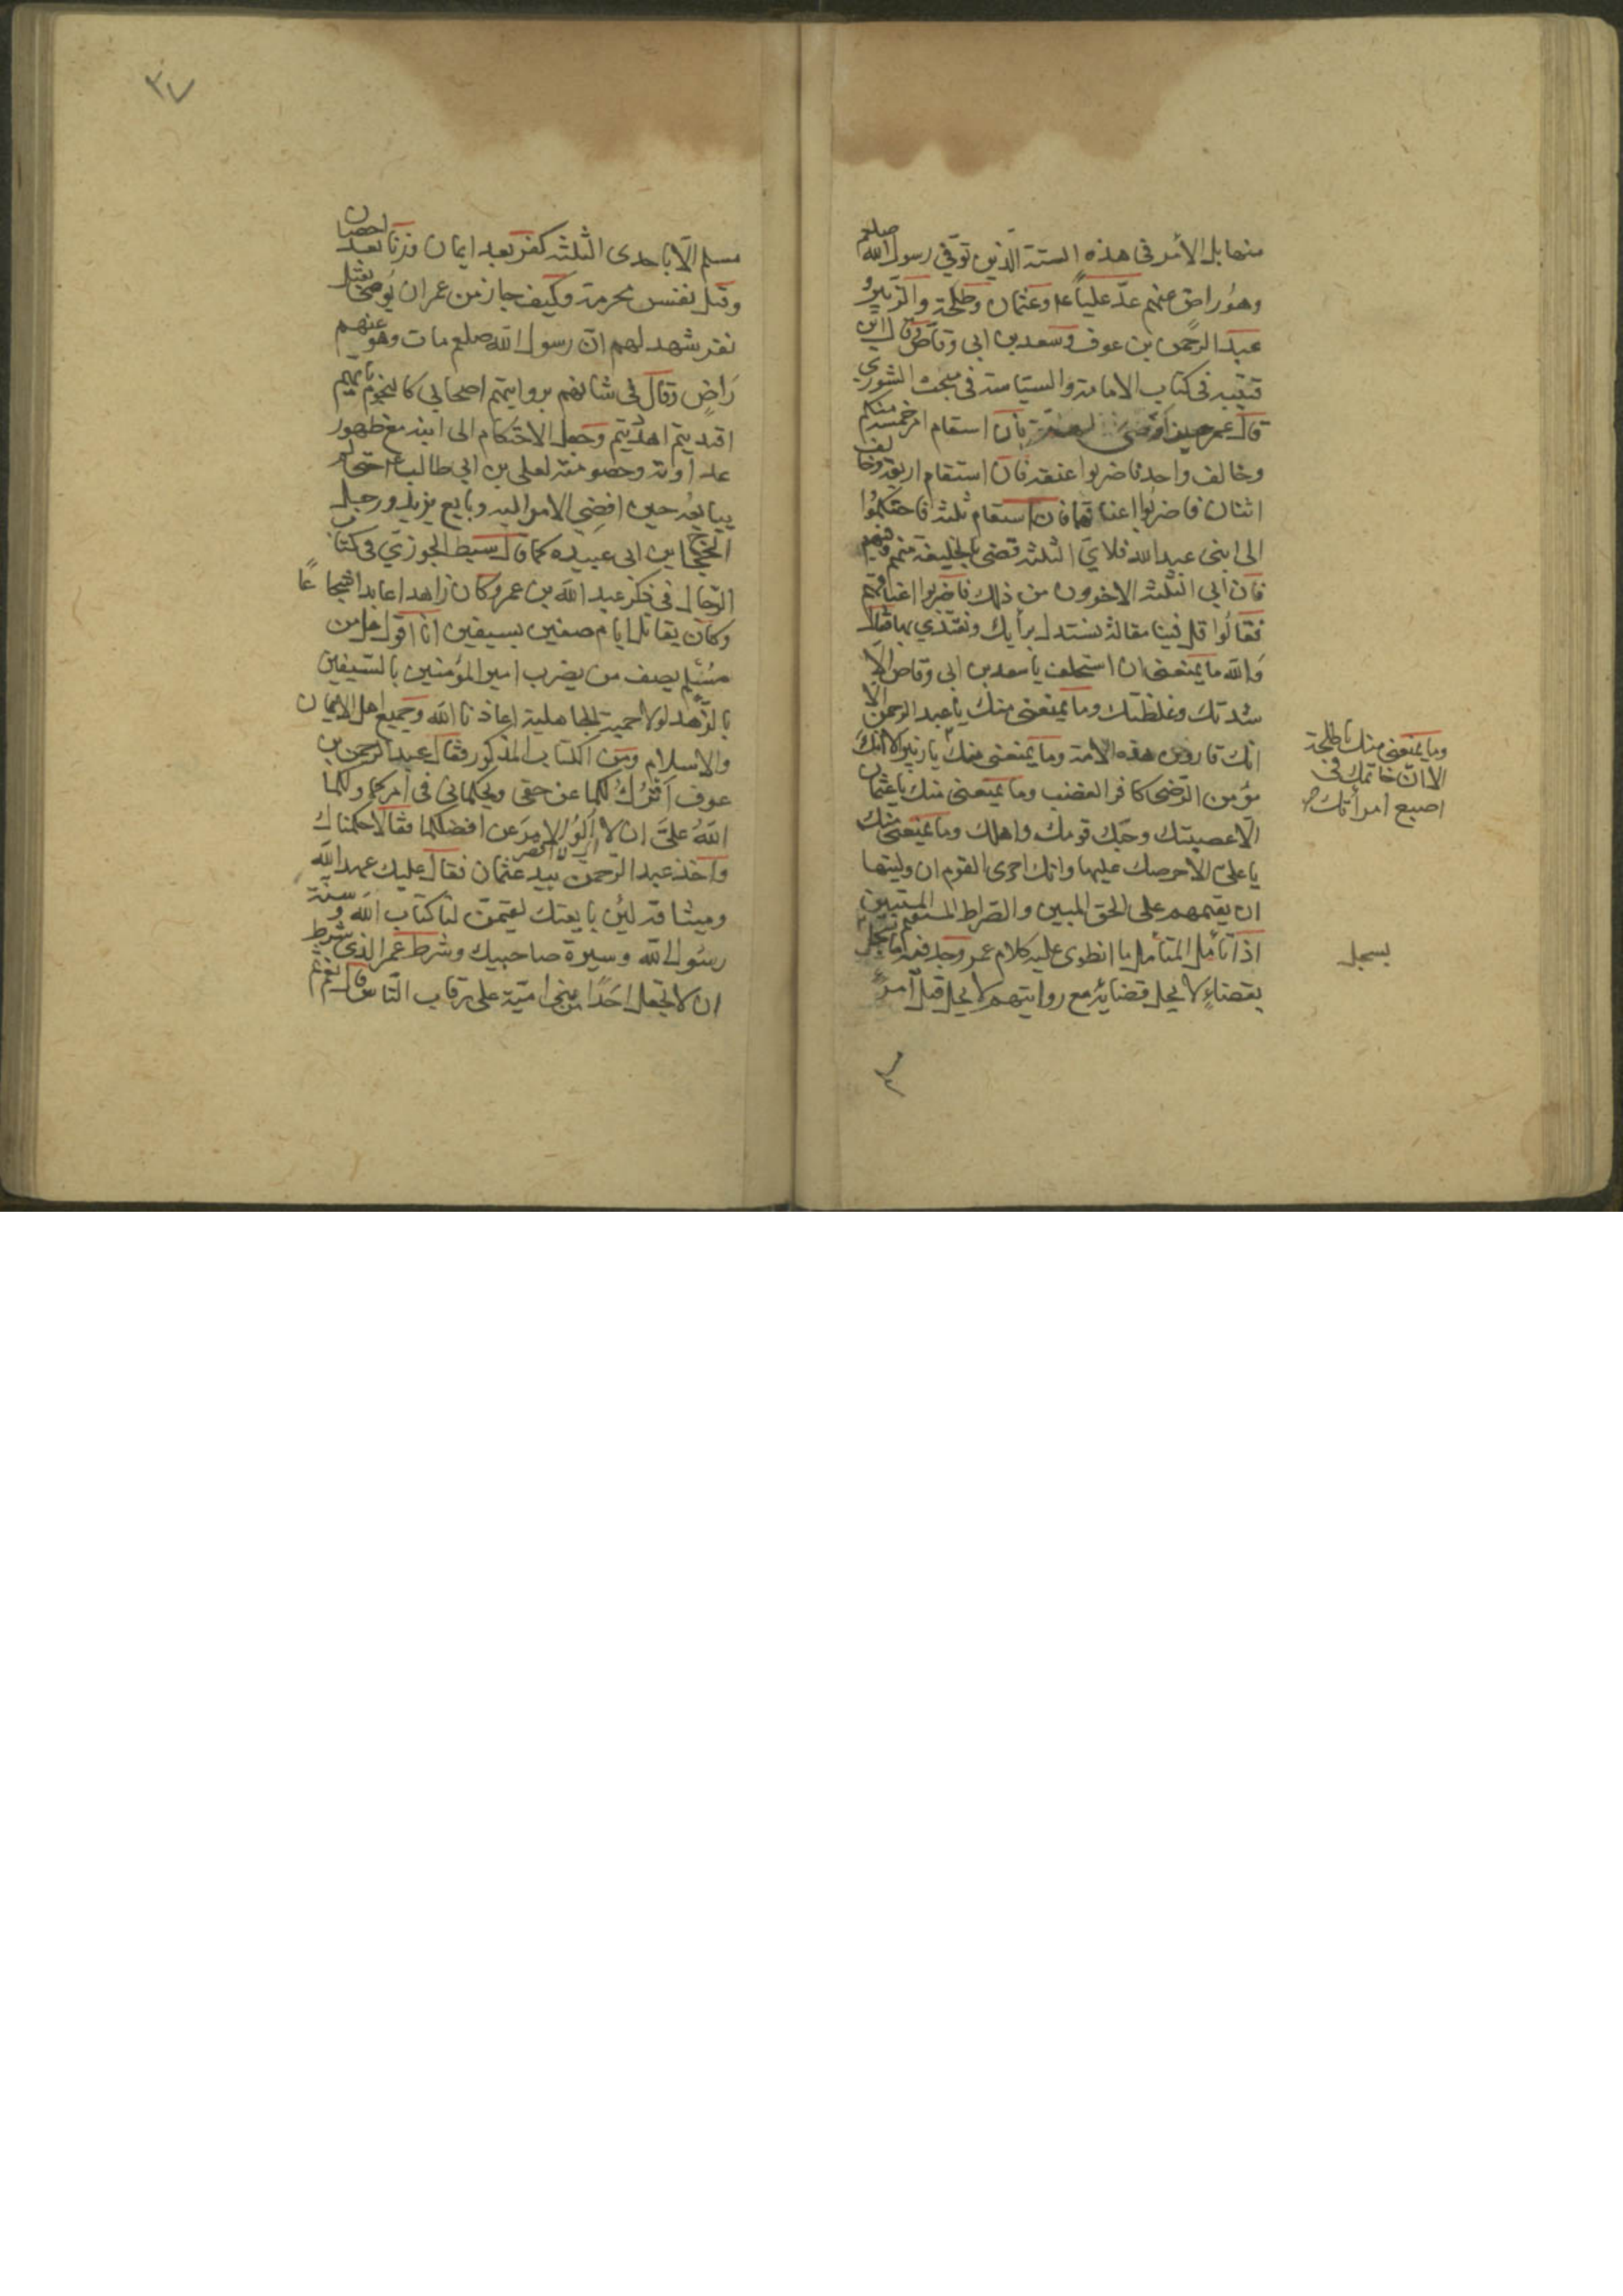 منها بل الأمر فى هذه الستة الّذين توّفي رسول الله صلعم
وهو راض عنهم عدّ علياً ع وعثمان وطلحة والزبير و
عبد الرحمن بن عوف وسعد بن ابى وقاص وقال ابن
قتيبه فى كتاب الامامة والسياسة فى مبحث الشورى
قال عمر حين بأن استقام امر خمسة منكم
وخالف واحد فاضربوا عنقه فان استقام اربعة وخالف
اثنان فاضربوا اعناقهما فان استقام ثلثة فاحتكموا
الى ابنى عبد الله فلايّ الثلثة قضى فالخليفة منهم وفيهم
فان أبى الثلثة الاخرون من ذلك فاضربوا اعناقهم
فقالوا قل فينا مقالة نستدل برأيك ونقتدي بها فقال
والله ما يمنعنى ان استخلف يا سعد بن ابى وقاص الّا
شدتك وغلظتك وما يمنعنى منك يا عبد الرحمن الّا
انّك قارون هذه الامة وما يمنعنى منك يا زبير الا انك
مؤمن الرّضى كافر الغضب وما يمنعنى منك يا عثمان
الّا عصبيتك وحبّك قومك واهلك وما يمنعنى منك
يا علىّ الا حرصك عليها وانك احرى القوم ان وليتها
ان يقيمهم على الحق المبين والصراط المستقيم المستبين
اذا تأمل المتأمل ما انطوى عليه كلام عمر وجد فيه اما
بقضاءٍ لا يحل قضائه مع روايتهم لا يحل قتل امرءٍ
وما يمنعنى منك يا طلحة
الا انّ خاتمك فى
اصبع امرأتك صح
يسجل
٣٧
مسلم الّا باحدى الثلثة كفر بعد ايمان وزنا بعد احصان
وقتل نفس محرمة وكيف جاز من عمر ان يوصى بقتل
نفر شهد لهم انّ رسول الله صلعم مات وهو عنهم
راضٍ وقال فى شانهم بروايتهم اصحابي كالنجوم بايهم
اقتديتم اهتديتم وجعل الاحتكام الى ابنه مع ظهور
عداوته وخصومته لعلي بن ابي طالب ع حتى لم
يبايعه حين افضى الامر اليه وبايع يزيد ورجل
الحجاج بن ابى عبيده كما قال سبط الجوزي فى كتاب
الرّجال فى ذكر عبد الله بن عمر وكان زاهدا عابدا شجاعًا
وكان يقاتل ايام صفين بسيفين انا اقول هل من
مسلم يصف من يضرب امير المؤمنين بالسيفين
بالزّهد لولا حمية الجاهلية اعاذنا الله وجميع اهل الايمان
والاسلام ومن الكتاب المذكور فقال عبد الرحمن بن
عوف اترك لكما عن حقى وتحكماني فى امركما ولكما
الله عليّ ان لا آلو الامر عن افضلكما فقالا حكمناك
واخذ عبد الرّحمن بيد عثمان فقال عليك عهد الله
وميثاقه لئن بايعتك لتقيمن لنا كتاب الله وسنة
رسول الله وسيرة صاحبيك وشرط عمر الذى شرط
ان لا تجعل احَدًا من بنى امية على رقاب النّاس قال نعم